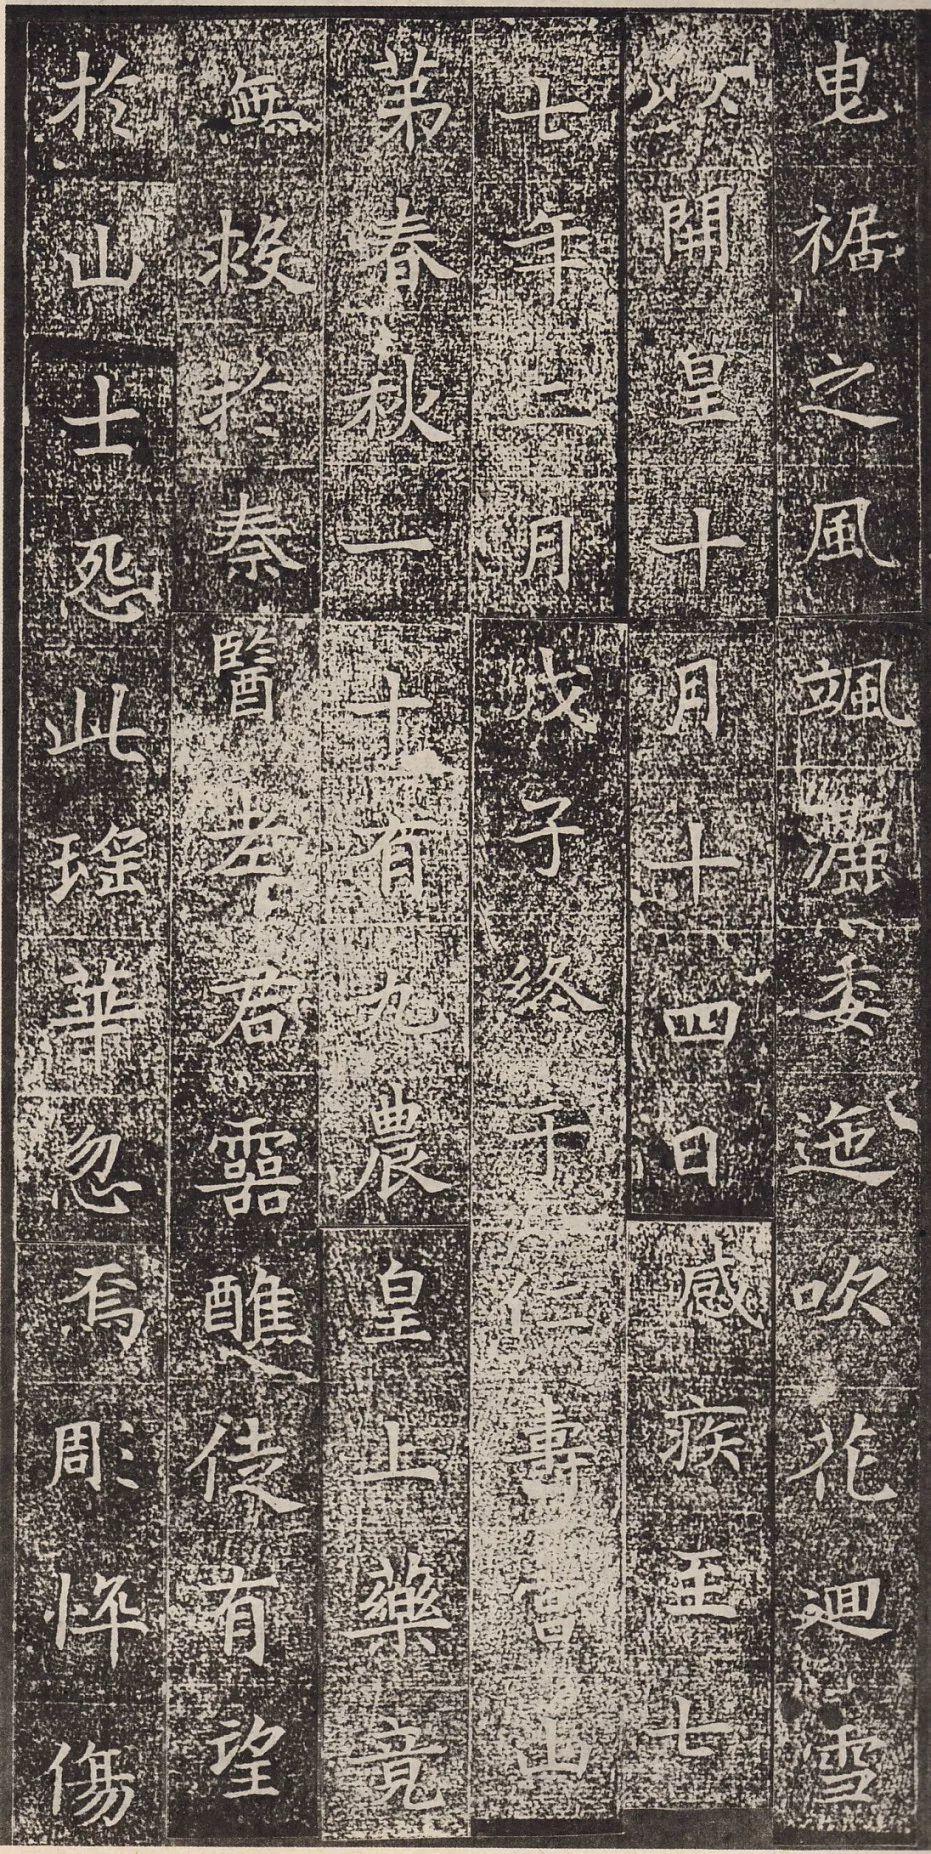 曳裾之風颯灑委迤吹花迴雪
以開皇十月十四日感疾至七
七年二月戊子終于仁壽宮山
苐春秋一十有九農皇上藥竟
無救於秦醫老君靈醮徒有望
於山士怨此瑤華忽焉彫悴傷